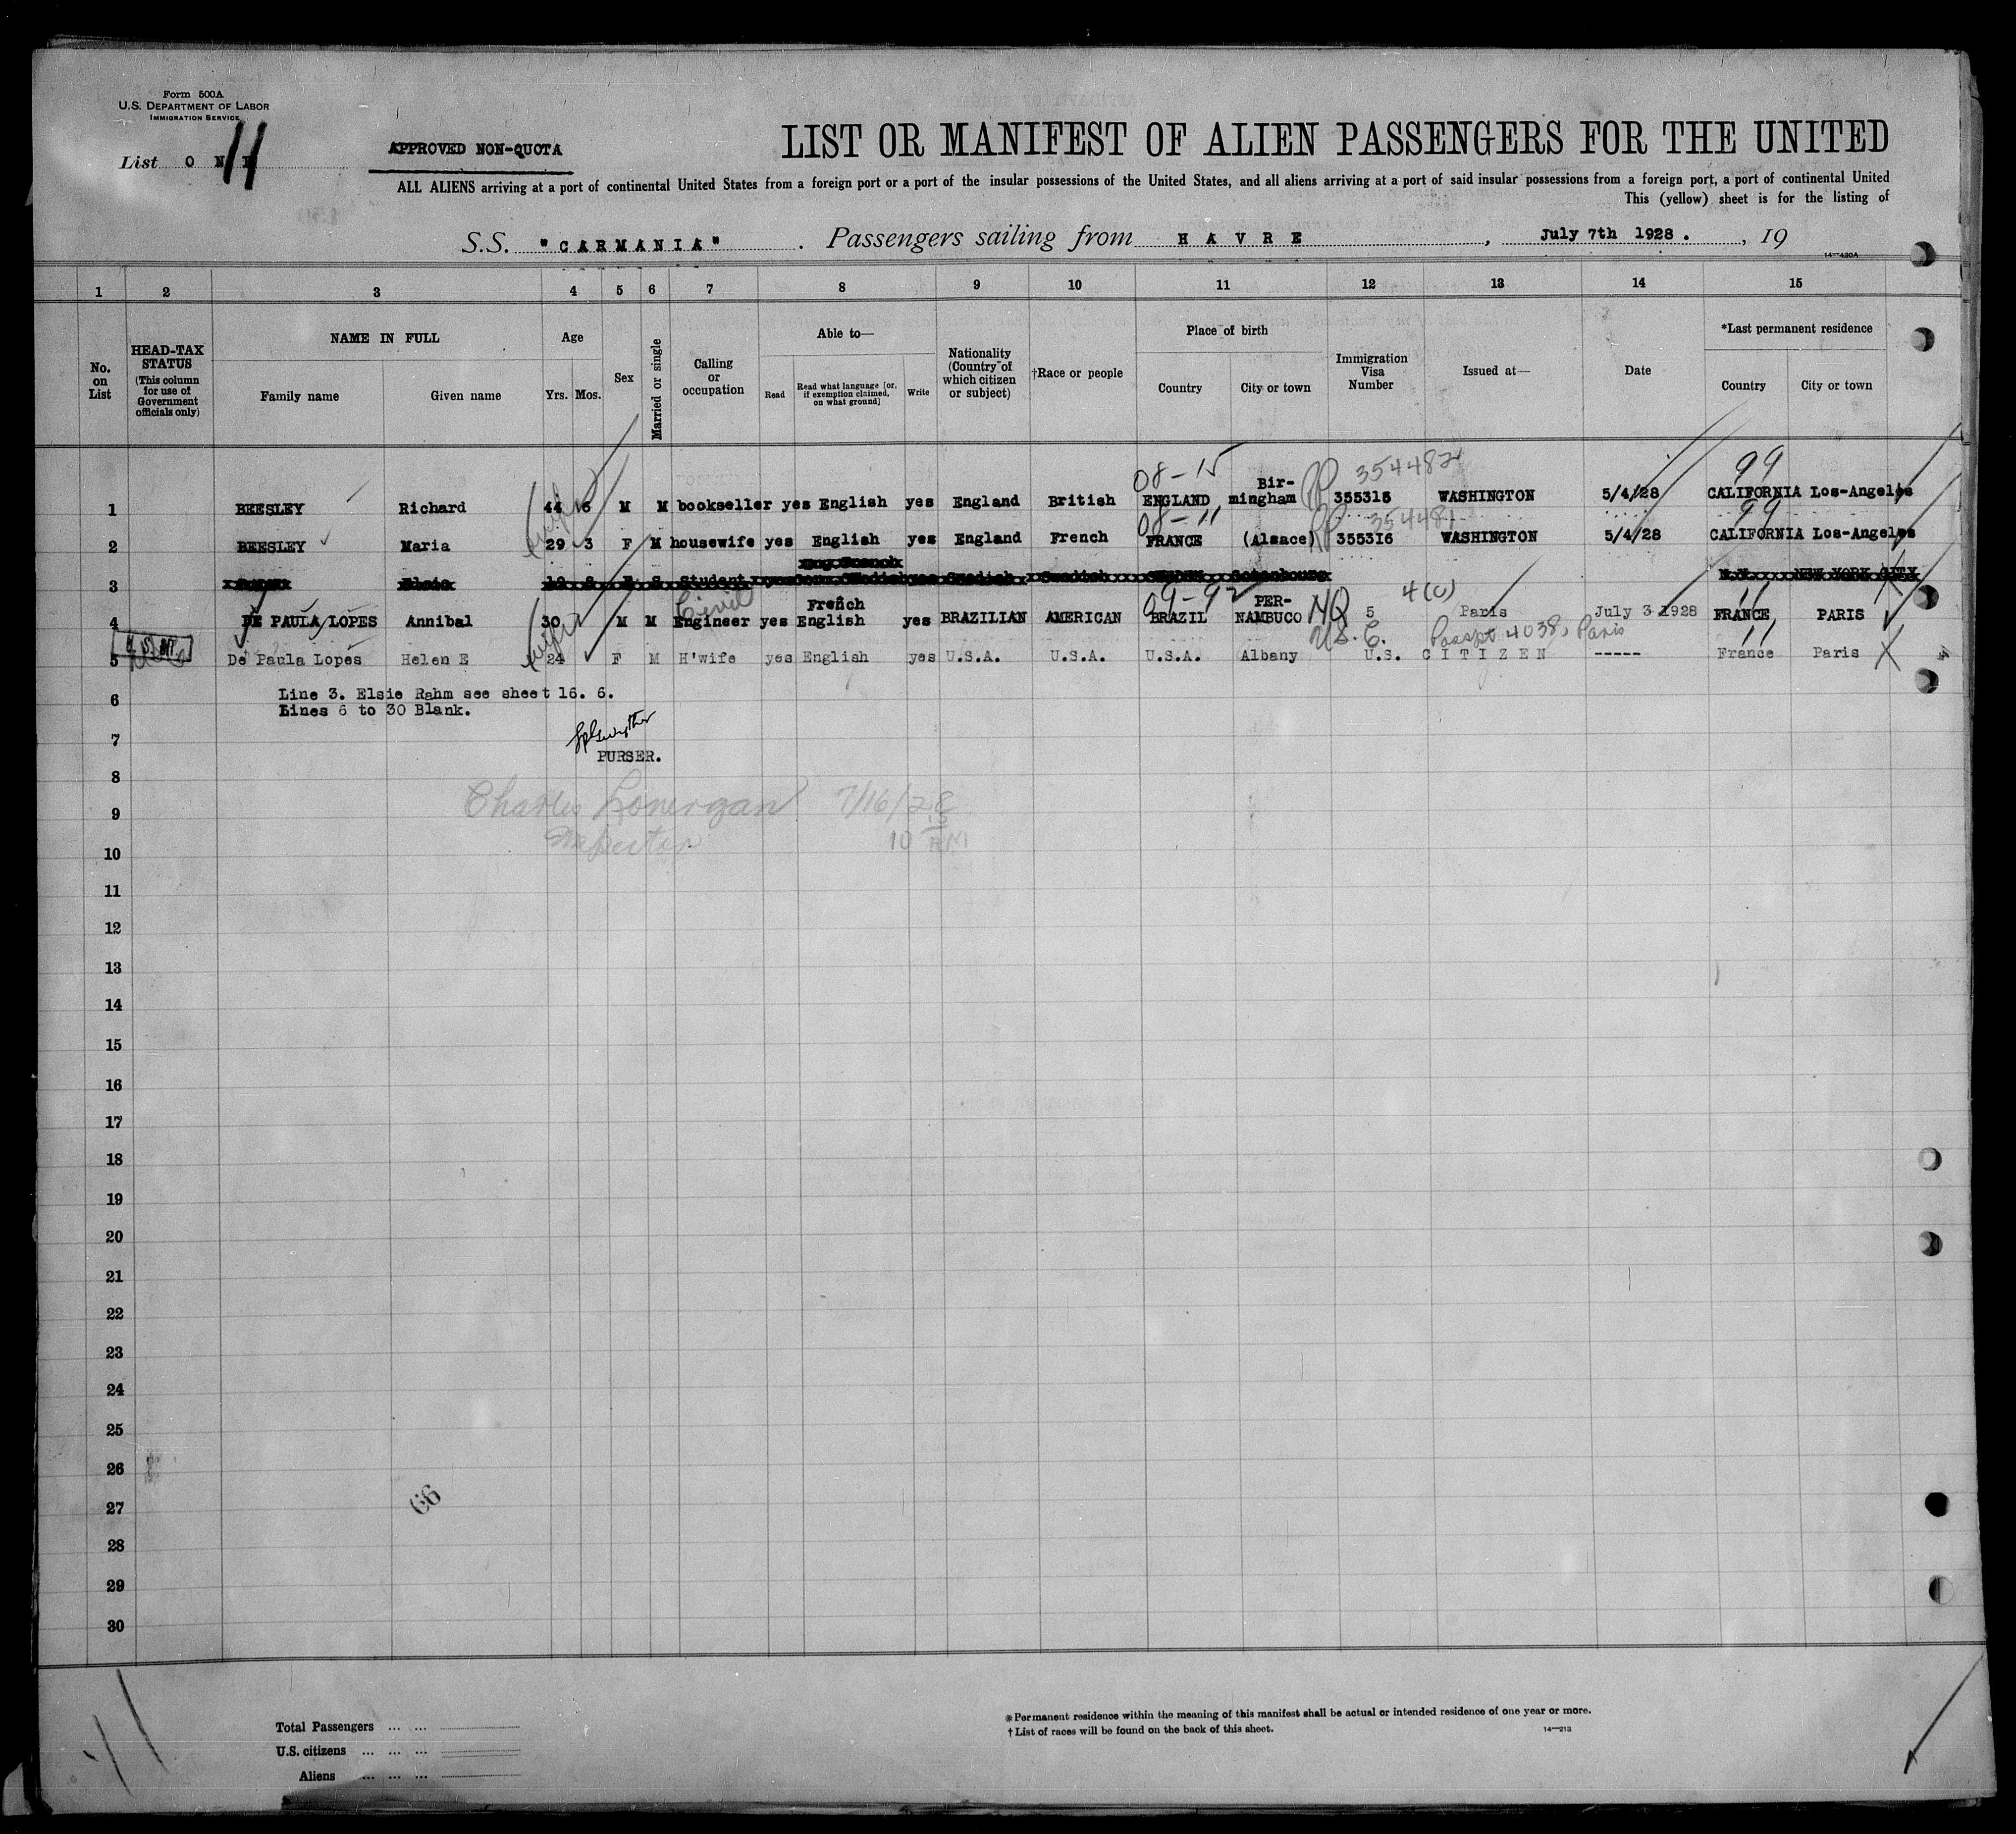 Form 500A
U.S. DEPARTMENT OF LABOR
IMMIGRATION SERVICE
List O N E 11
APPROVED NON-QUOTA
LIST OR MANIFEST OF ALIEN PASSENGERS FOR THE UNITED
ALL ALIENS arriving at a port of continental United States from a foreign port or a port of the insular possessions of the United States, and all aliens arriving at a port of said insular possessions from a foreign port, a port of continental United
This (yellow) sheet is for the listing of
S.S. "CARMANIA" . Passengers sailing from H A V R E , July 7th 1928. , 19
14—430A
1 2 3 4 5 6 7 8 9 10 11 12 13 14 15
No. on List
HEAD-TAX STATUS (This column for use of Government officials only)
NAME IN FULL
Family name Given name
Age
Yrs. Mos.
Sex
Married or single
Calling or occupation
Able to—
Read Read what language [or, if exemption claimed, on what ground] Write
Nationality (Country of which citizen or subject)
†Race or people
Place of birth
Country City or town
Immigration Visa Number
Issued at—
Date
*Last permanent residence
Country City or town
08-15 354482 99
1 BEESLEY Richard 44 6 M M bookseller yes English yes England British ENGLAND Bir-mingham PP 355315 WASHINGTON 5/4/28 CALIFORNIA Los-Angeles
08-11 354481 99
2 BEESLEY Maria 29 3 F M housewife yes English yes England French FRANCE (Alsace) PP 355316 WASHINGTON 5/4/28 CALIFORNIA Los-Angeles
3 Elsie 8 S Student yes Swedish yes Swedish Swedish N.Y. NEW YORK CITY
Civil 09-92 4(c) 11
4 DE PAULA LOPES Annibal 30 M M Engineer yes French English yes BRAZILIAN AMERICAN BRAZIL PER-NAMBUCO NQ 5 Paris July 3 1928 FRANCE PARIS
U.S. C. Passpt 4038, Paris 11
5 De Paula Lopes Helen E 24 F M H'wife yes English yes U.S.A. U.S.A. U.S.A. Albany U.S. C I T I Z E N ----- France Paris
6 Line 3. Elsie Rahm see sheet 16. 6.
Lines 6 to 30 Blank.
7
PURSER.
8
Charles Lonergan 7/16/28
9
Inspector 10 AM
10
11
12
13
14
15
16
17
18
19
20
21
22
23
24
25
26
27
66
28
29
30
Total Passengers ... ...
U.S. citizens ... ... ...
Aliens ... ... ...
*Permanent residence within the meaning of this manifest shall be actual or intended residence of one year or more.
†List of races will be found on the back of this sheet.
14—213